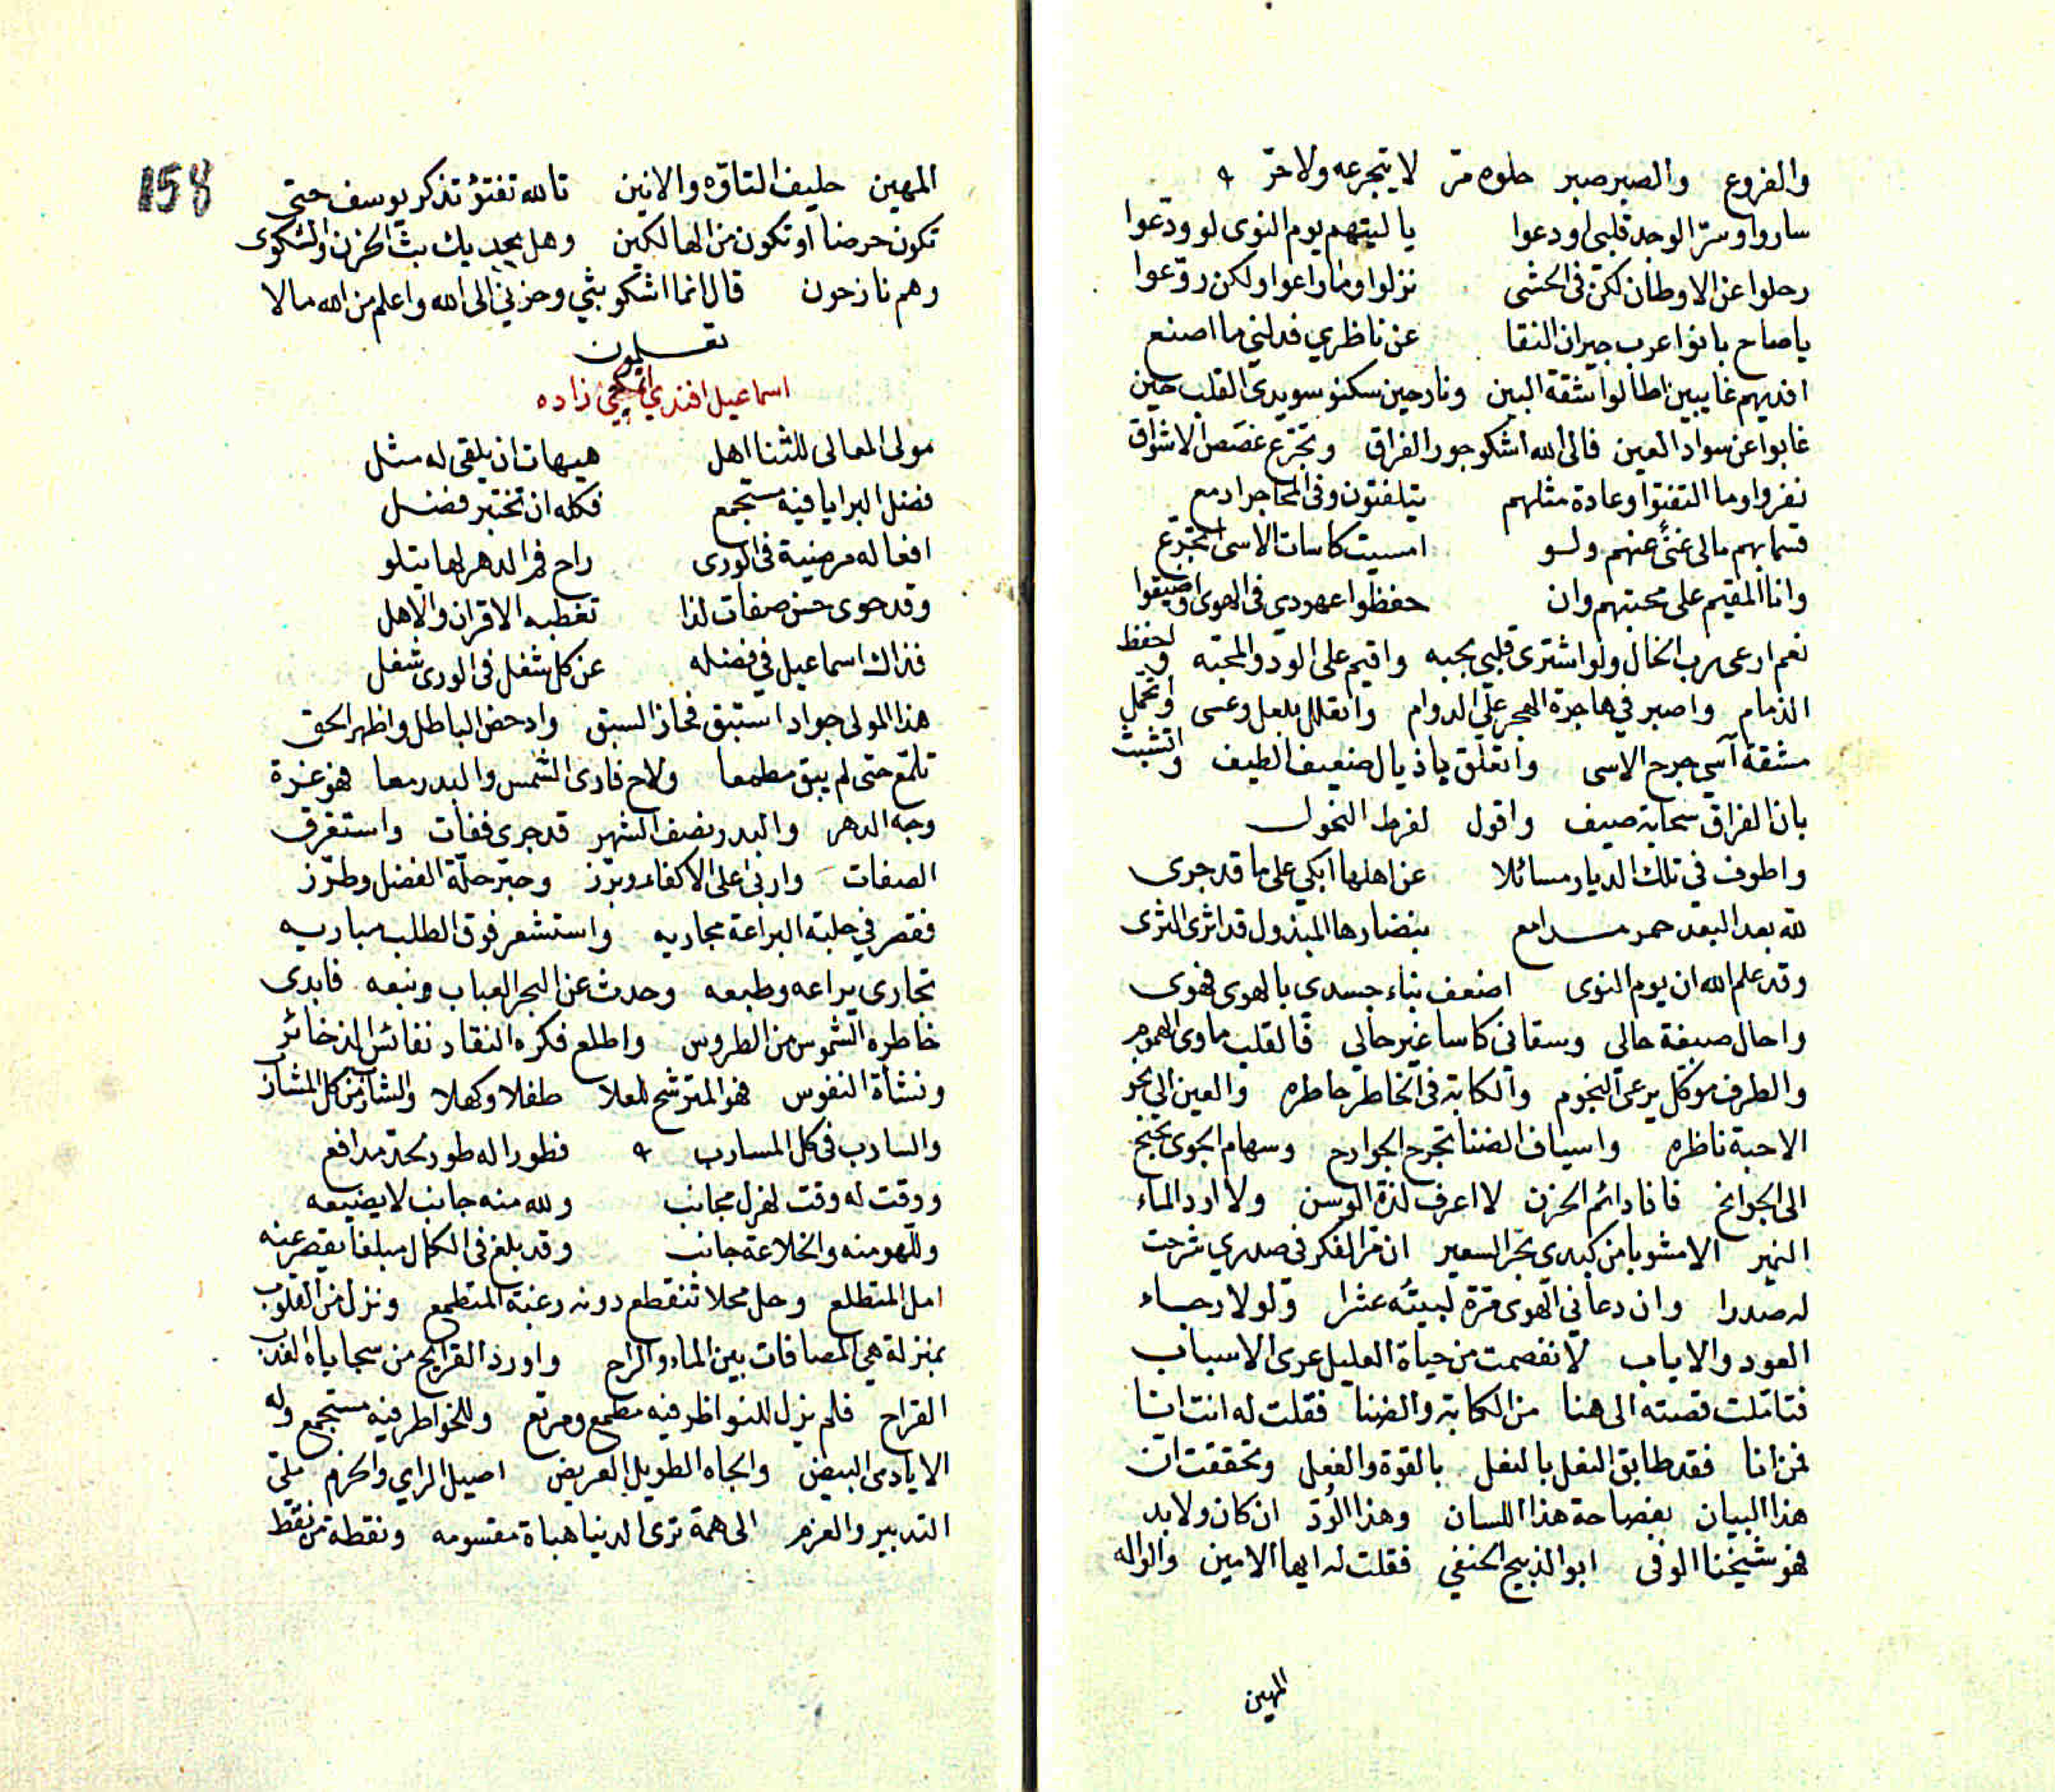 والفروع والصبر صبر حلوه مرّ لا يتجرعه ولا حرّ
ساروا وسرّ الوجد قلبى اودعوا يا ليتهم يوم النوى لو ودّعوا
رحلوا عن الاوطان لكن فى الحشى نزلوا وما راعوا ولكن روّعوا
يا صاح بانوا عرب جيران النقا عن ناظري فدلني ما اصنع
افديهم غايبين اطالوا شقة البين ونازحين سكنو سويدى القلب حين
غابوا عن سواد العين فالى الله اشكو جور الفراق وتجرّع غصص الاشواق
نفروا وما التفتوا وعادة مثلهم يتلفتون وفى المحاجر ادمع
قسما بهم مالى غنىً عنهم ولسو امسيت كاسات الاسى اتجرّع
وانا المقيم على محبتهم وان حفظوا عهودي فى الهوى او ضيعوا
نعم ارعى رب الخال ولو اشترى قلبي بحبه واقيم على الود والمحبه واحفظ
الذمام واصبر في هاجرة الهجر على الدوام واتعلل بلعل وعسى واتحمل
مشقة آسي جرح الاسى واتعلق باذيال ضعيف الطيف واتشبث
بان الفراق سحابة صيف واقول لفرط النحول
واطوف فى تلك الديار مسائلا عن اهلها ابكي على ما قد جرى
لله بعد البعد حمر مدامع بنضارها المبذول قد اثرى الثرى
وقد علم الله ان يوم النوى اضعف بناء جسدى بالهوى فهوى
واحال صبغة حالى وسقانى كاسا غير حالي فالقلب ماوى الهموم
والطرف موكل برعى النجوم والكابة فى الخاطر خاطره والعين الى نحو
الاحبة ناظره واسياف الضنا تجرح الجوارح وسهام الجوى تجنح
الى الجوانح فانا دائم الحزن لا اعرف لذة الوسن ولا ارد الماء
النمير الا مشوبا من كبدى بحرّ السعير ان مرّ الفكر فى صدري شرحت
له صدرا وان دعانى الهوى مرّة لبيته عشرا ولولا رجاء
العود والاياب لانفصمت من حياة العليل عرى الاسباب
فتاملت قصته الى هنا من الكابة والضنا فقلت له انت انا
فمن انا فقد طابق النعل بالنعل بالقوة والفعل وتحققت ان
هذا البيان بفصاحة هذا اللسان وهذا الودّ ان كان ولا بد
فهو شيخنا الوفى ابو الذبيح الحنفي فقلت له ايها الامين والواله
المهين
158
المهين حليف التاوّه والانين تالله تفتؤ تذكر يوسف حتى
تكون حرضا او تكون من الهالكين وهل يجديك بث الحزن والشكوى
وهم نازحون قال انما اشكو بثي وحزني الى الله واعلم من الله مالا
تعلمون
اسماعيل افندي زاده
مولى المعالى للثنا اهل هيهات ان يلقى له مثل
فضل البرايا فيه مستجمع فكله ان تختبر فضل
افعاله مرضية فى الورى راح فم الدهر لها يتلو
وقد حوى حسن صفات لذا تغطبه الاقران والاهل
فذاك اسماعيل في فضله عن كل شغل فى الورى شغل
هذا المولى جواد استبق فحاز السبق وادحض الباطل واظهر الحق
تلمّع حتى لم يبق مطمعا ولاح فارى الشمس والبدر معا فهو غرة
وجه الدهر والبدر نصف الشهر قد جرى ففات واستغرق
الصفات واربى على الاكفاء وبرّز وحبّر حلّة الفضل وطرّز
فقصر في حلبة البراعة مجاريه واستشعر فوق الطلب مباريه
تجارى يراعه وطبعه وحدث عن البحر العباب ونبعه فابدى
خاطره الشموس من الطروس واطلع فكره النقاد نفائس الذخائر
ونشأة النفوس فهو المترشح للعلا طفلا وكهلا
والسارب فى كل المسارب فطورا له طور بجدّ مدافع
ووقت له وقت لهزل مجانب ولله منه جانب لا يضيعه
وللهو منه والخلاعة جانب وقد بلغ فى الكمال مبلغا يقصر عنه
امل المتطلع وحل محلا تنقطع دونه رغبة المتطمع ونزل من القلوب
بمنزلة هي المصافات بين الماء والراح واورد القرايح من سجاياه العذب
القراح فلم يزل للنواظر فيه مطمع ومرتع وللخواطر فيه مستجمع وله
الايادى البيض والجاه الطويل العريض اصيل الراي والحزم ملئ
التدبير والعزم الى همة ترى الدنيا هباة مقسومه ونقطة من نقط